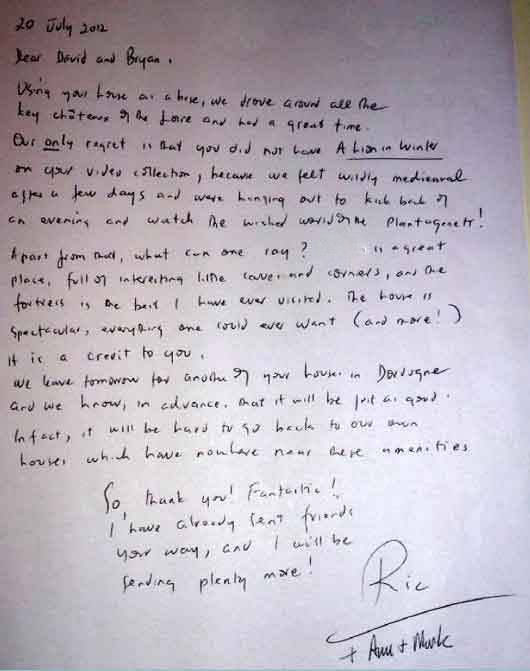 20 July 2012
Dear David and Bryan,
Using your house as a base, we drove around all the
key châteaux of the Loire and had a great time.
Our only regret is that you did not have A Lion in Winter
on your video collection, because we felt wildly medieaval
after a few days and were hanging out to kick back of
an evening and watch the wicked world of the Plantagenets!
Apart from that, what can one say? is a great
place, full of interesting little caves and corners, and the
fortress is the best I have ever visited. The house is
spectacular, everything one could ever want (and more!)
It is a credit to you.
We leave tomorrow for another of your houses in Dordogne
and we know, in advance, that it will be just as good.
In fact, it will be hard to go back to our own
houses which have nowhere near these amenities
So thank you! Fantastic!
I have already sent friends
your way, and I will be
sending plenty more!
Ric
+ Ann + Mark